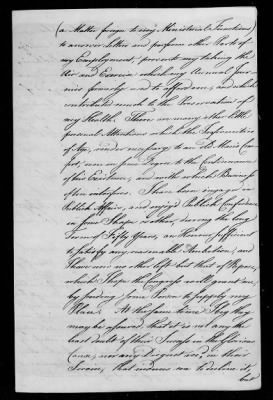 (a Matter foreign to my Ministerial Functions)
to answer Letters and perform other Parts of
my Employment, prevents my taking the
Air and Exercise which my Annual Jour-
nies formerly used to afford me, and which
contributed much to the Preservation of
my Health. There are many other little
personal Attentions which the Infirmities
of Age, render necessary to an Old Man's Com-
fort, even in some Degree to the Continuance
of his Existence, and with which Business
often interferes. I have been engaged in
Publick Affairs, and enjoyed Publick Confidence
in some Shape or other, during the long
Term of Fifty Years, an Honour sufficient
to satisfy any reasonable Ambition, and
I have now no other left but that of Repose,
which I hope the Congress will grant me,
by sending some Person to supply my
Place. At the same time I beg they
may be assured that it is not any the
least doubt of their Success in the Glorious
Cause, nor any Disgust in their
Service, that induces me to decline it,
but